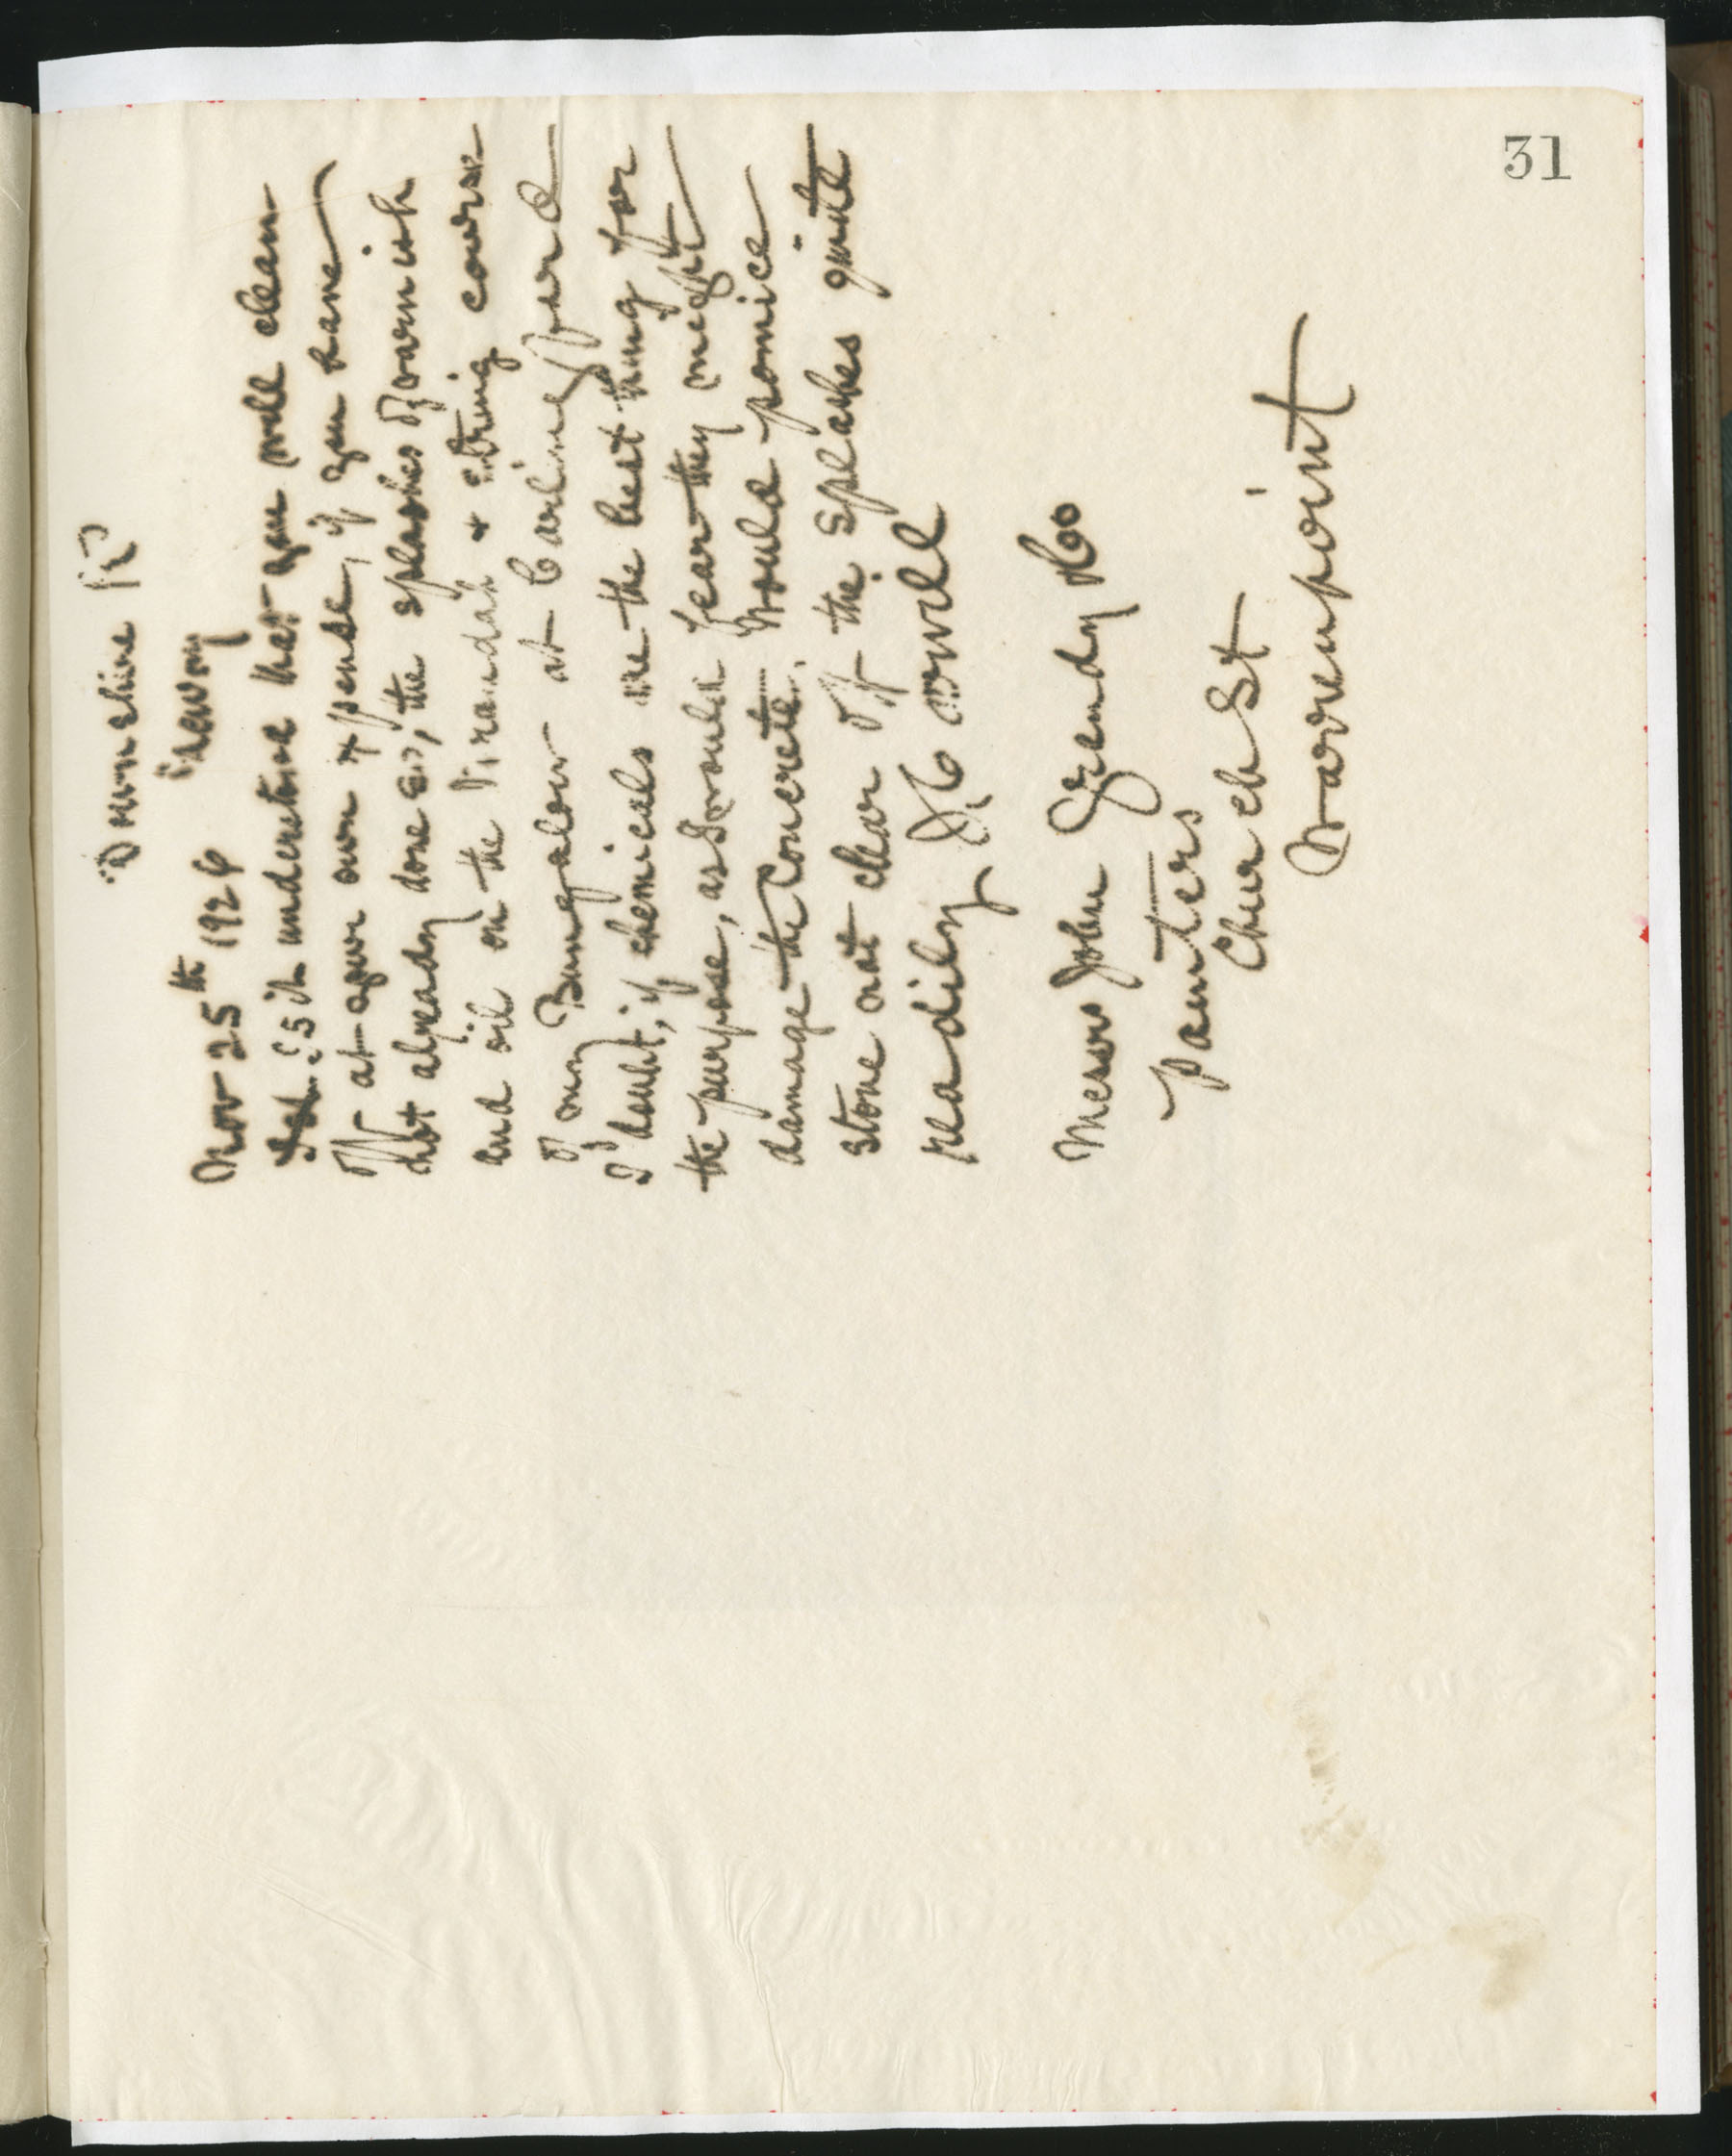 31
Downshire Rd
Newry
Nov 25th 1924
It is understood that you will clean
off at your own expense, if you have
not already done so, the splashes of varnish
and oil on the Verandah & string course
of my Bungalow at Carlingford
I doubt, if chemicals are the best thing for
the purpose, as I would fear they might
damage the Concrete. Would pomice
stone not clear off the splashes quite
readily
Messrs John Grendy & Co
Painters
Church St
Warrenpoint